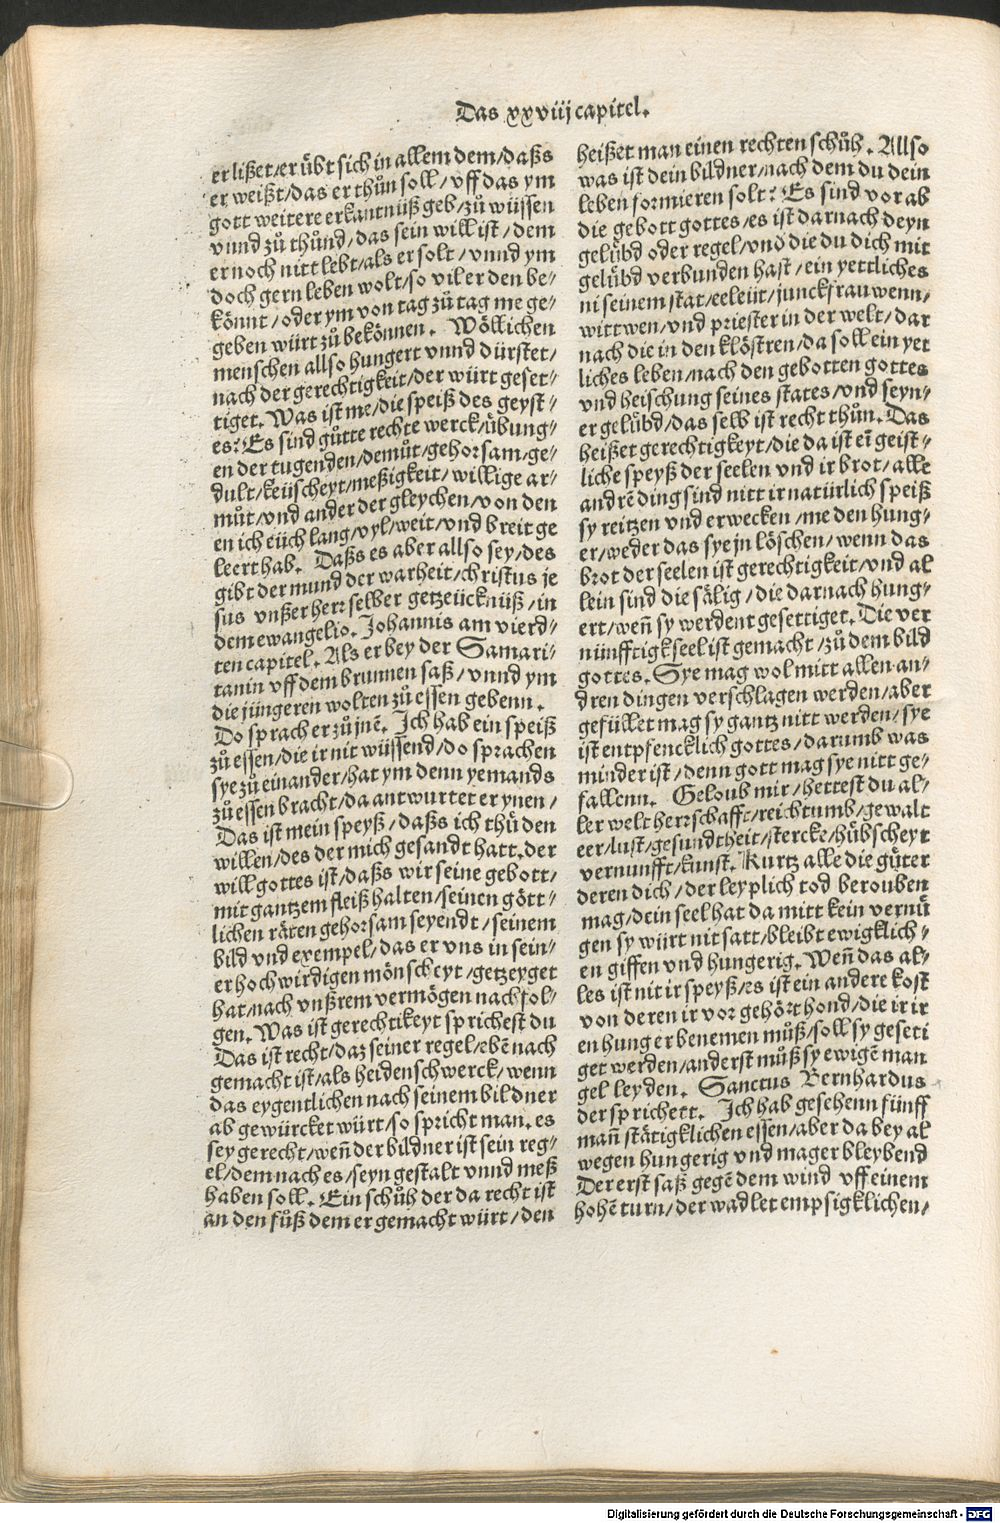 Das xxviij capitel.
er lißet/er uͤbt sich in allem dem/daßs
er weißt/das er thuͦn soll/vff das ym
gott weitere erkantnüß geb/zuͦ wüssen
vnnd zuͦ thuͦnd/das sein will ist/dem
er noch nitt lebt/als er solt/vnnd ym
doch gern leben wolt/so vil er den be⸗
koͤnnt/oder ym von tag zuͦ tag me ge⸗
geben würt zuͦ bekoͤnnen. Woͤllichen
menschen allso hungert vnnd dürstet/
nach der gerechtigkeit/der würt geset⸗
tiget. Was ist me/die speiß des geyst⸗
es? Es sind guͦtte rechte werck/uͤbung⸗
en der tugenden/demuͤt/gehorsam/ge⸗
dult/keüscheyt/meßigkeit/willige ar⸗
muͦt/vnd ander der gleychen/von den
en ich eüch lang/vyl/weit/vnd breit ge
leert hab. Daßs es aber allso sey/des
gibt der mund der warheit/christus je
sus vnßer herr selber getzeücknüß/in
dem ewangelio. Johannis am vierd⸗
ten capitel. Als er bey der Samari⸗
tanin vff dem brunnen saß/vnnd ym
die jüngeren wolten zuͦ essen gebenn.
Do sprach er zuͦ jnē. Ich hab ein speiß
zuͦ essen/die ir nit wüssend/do sprachen
sye zuͦ einander/hat ym denn yemands
zuͦ essen bracht/da antwurtet er ynen/
Das ist mein speyß/daßs ich thuͤ den
willen/des der mich gesandt hatt.der
will gottes ist/daßs wir seine gebott/
mit gantzem fleiß halten/seinen goͤtt⸗
lichen raͤten gehorsam seyendt/seinem
bild vnd exempel/das er vns in sein⸗
er hochwirdigen moͤnscheyt/getzeyget
hat/nach vnßrem vermoͤgen nachfol⸗
gen. Was ist gerechtikeyt sprichest du
Das ist recht/daz seiner regel/ebē nach
gemacht ist/als heidenschwerck/wenn
das eygentlichen nach seinem bildner
ab gewürcket würt/so spricht man.es
sey gerecht/weñ der bildner ist sein reg⸗
el/dem nach es/seyn gestalt vnnd meß
haben soll. Ein schuͦh der da recht ist
an den fuͦß dem er gemacht würt/den
heißet man einen rechten schuͦh. Allso
was ist dein bildner/nach dem du dein
leben formieren solt? Es sind vor ab
die gebott gottes/es ist darnach deyn
geluͤbd oder regel/vnd die du dich mit
geluͤbd verbunden hast/ein yettliches
ni seinem stat/eeleüt/junckfrauwenn/
wittwen/vnd priester in der welt/dar
nach die in den kloͤstren/da soll ein yet
liches leben/nach den gebotten gottes
vnd heischung seines states/vnd seyn⸗
er geluͤbd/das selb ist recht thuͦn. Das
heißet gerechtigkeyt/die da ist eī geist⸗
liche speyß der seelen vnd ir brot/alle
andrē ding sind nitt ir natürlich speiß
sy reitzen vnd erwecken/me den hung⸗
er/weder das sye jn loͤschen/wenn das
brot der seelen ist gerechtigkeit/vnd al
lein sind die saͤlig/die darnach hung⸗
ert/weñ sy werdent gesettiget. Die ver
nünfftig seel ist gemacht/zuͦ dem bild
gottes. Sye mag wol mitt allen an⸗
dren dingen verschlagen werden/aber
gefüllet mag sy gantz nitt werden/sye
ist entpfencklich gottes/darumb was
minder ist/denn gott mag sye nitt ge⸗
fallenn. Geloub mir/hettest du al⸗
ler welt herrschafft/reichtumb/gewalt
eer/lust/gesundtheit/stercke/hübscheyt
vernunfft/kunst. Kurtz alle die guͤter
deren dich/der leyplich tod berouben
mag/dein seel hat da mitt kein vernuͤ
gen sy würt nit satt/bleibt ewigklich⸗
en giffen vnd hungerig. Weñ das al⸗
les ist nit ir speyß/es ist ein andere kost
von deren ir vor gehoͤrt hond/die ir ir
en hunger benemen muͦß/soll sy geseti
get werden/anderst muͦß sy ewigē man
gel leyden. Sanctus Bernhardus
der sprichett. Ich hab gesehenn fünff
mañ staͤtigklichen essen/aber da bey al
wegen hungerig vnd mager bleybend
Der erst saß gegē dem wind vff einem
hohē turn/der wadlet empsigklichen/
Digitalisierung gefördert durch die Deutsche Forschungsgemeinschaft - DFG